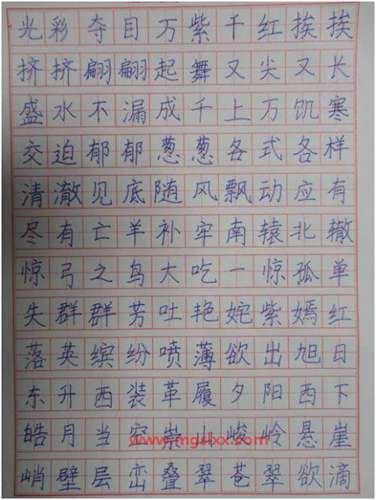 光彩夺目万紫千红挨挨
挤挤翩翩起舞又尖又长
盛水不漏成千上万饥寒
交迫郁郁葱葱各式各样
清澈见底随风飘动应有
尽有亡羊补牢南辕北辙
惊弓之鸟大吃一惊孤单
失群群芳吐艳姹紫嫣红
落英缤纷喷薄欲出旭日
东升西装革履夕阳西下
皓月当空崇山峻岭悬崖
www.mgslxx.com
峭壁层峦叠翠苍翠欲滴